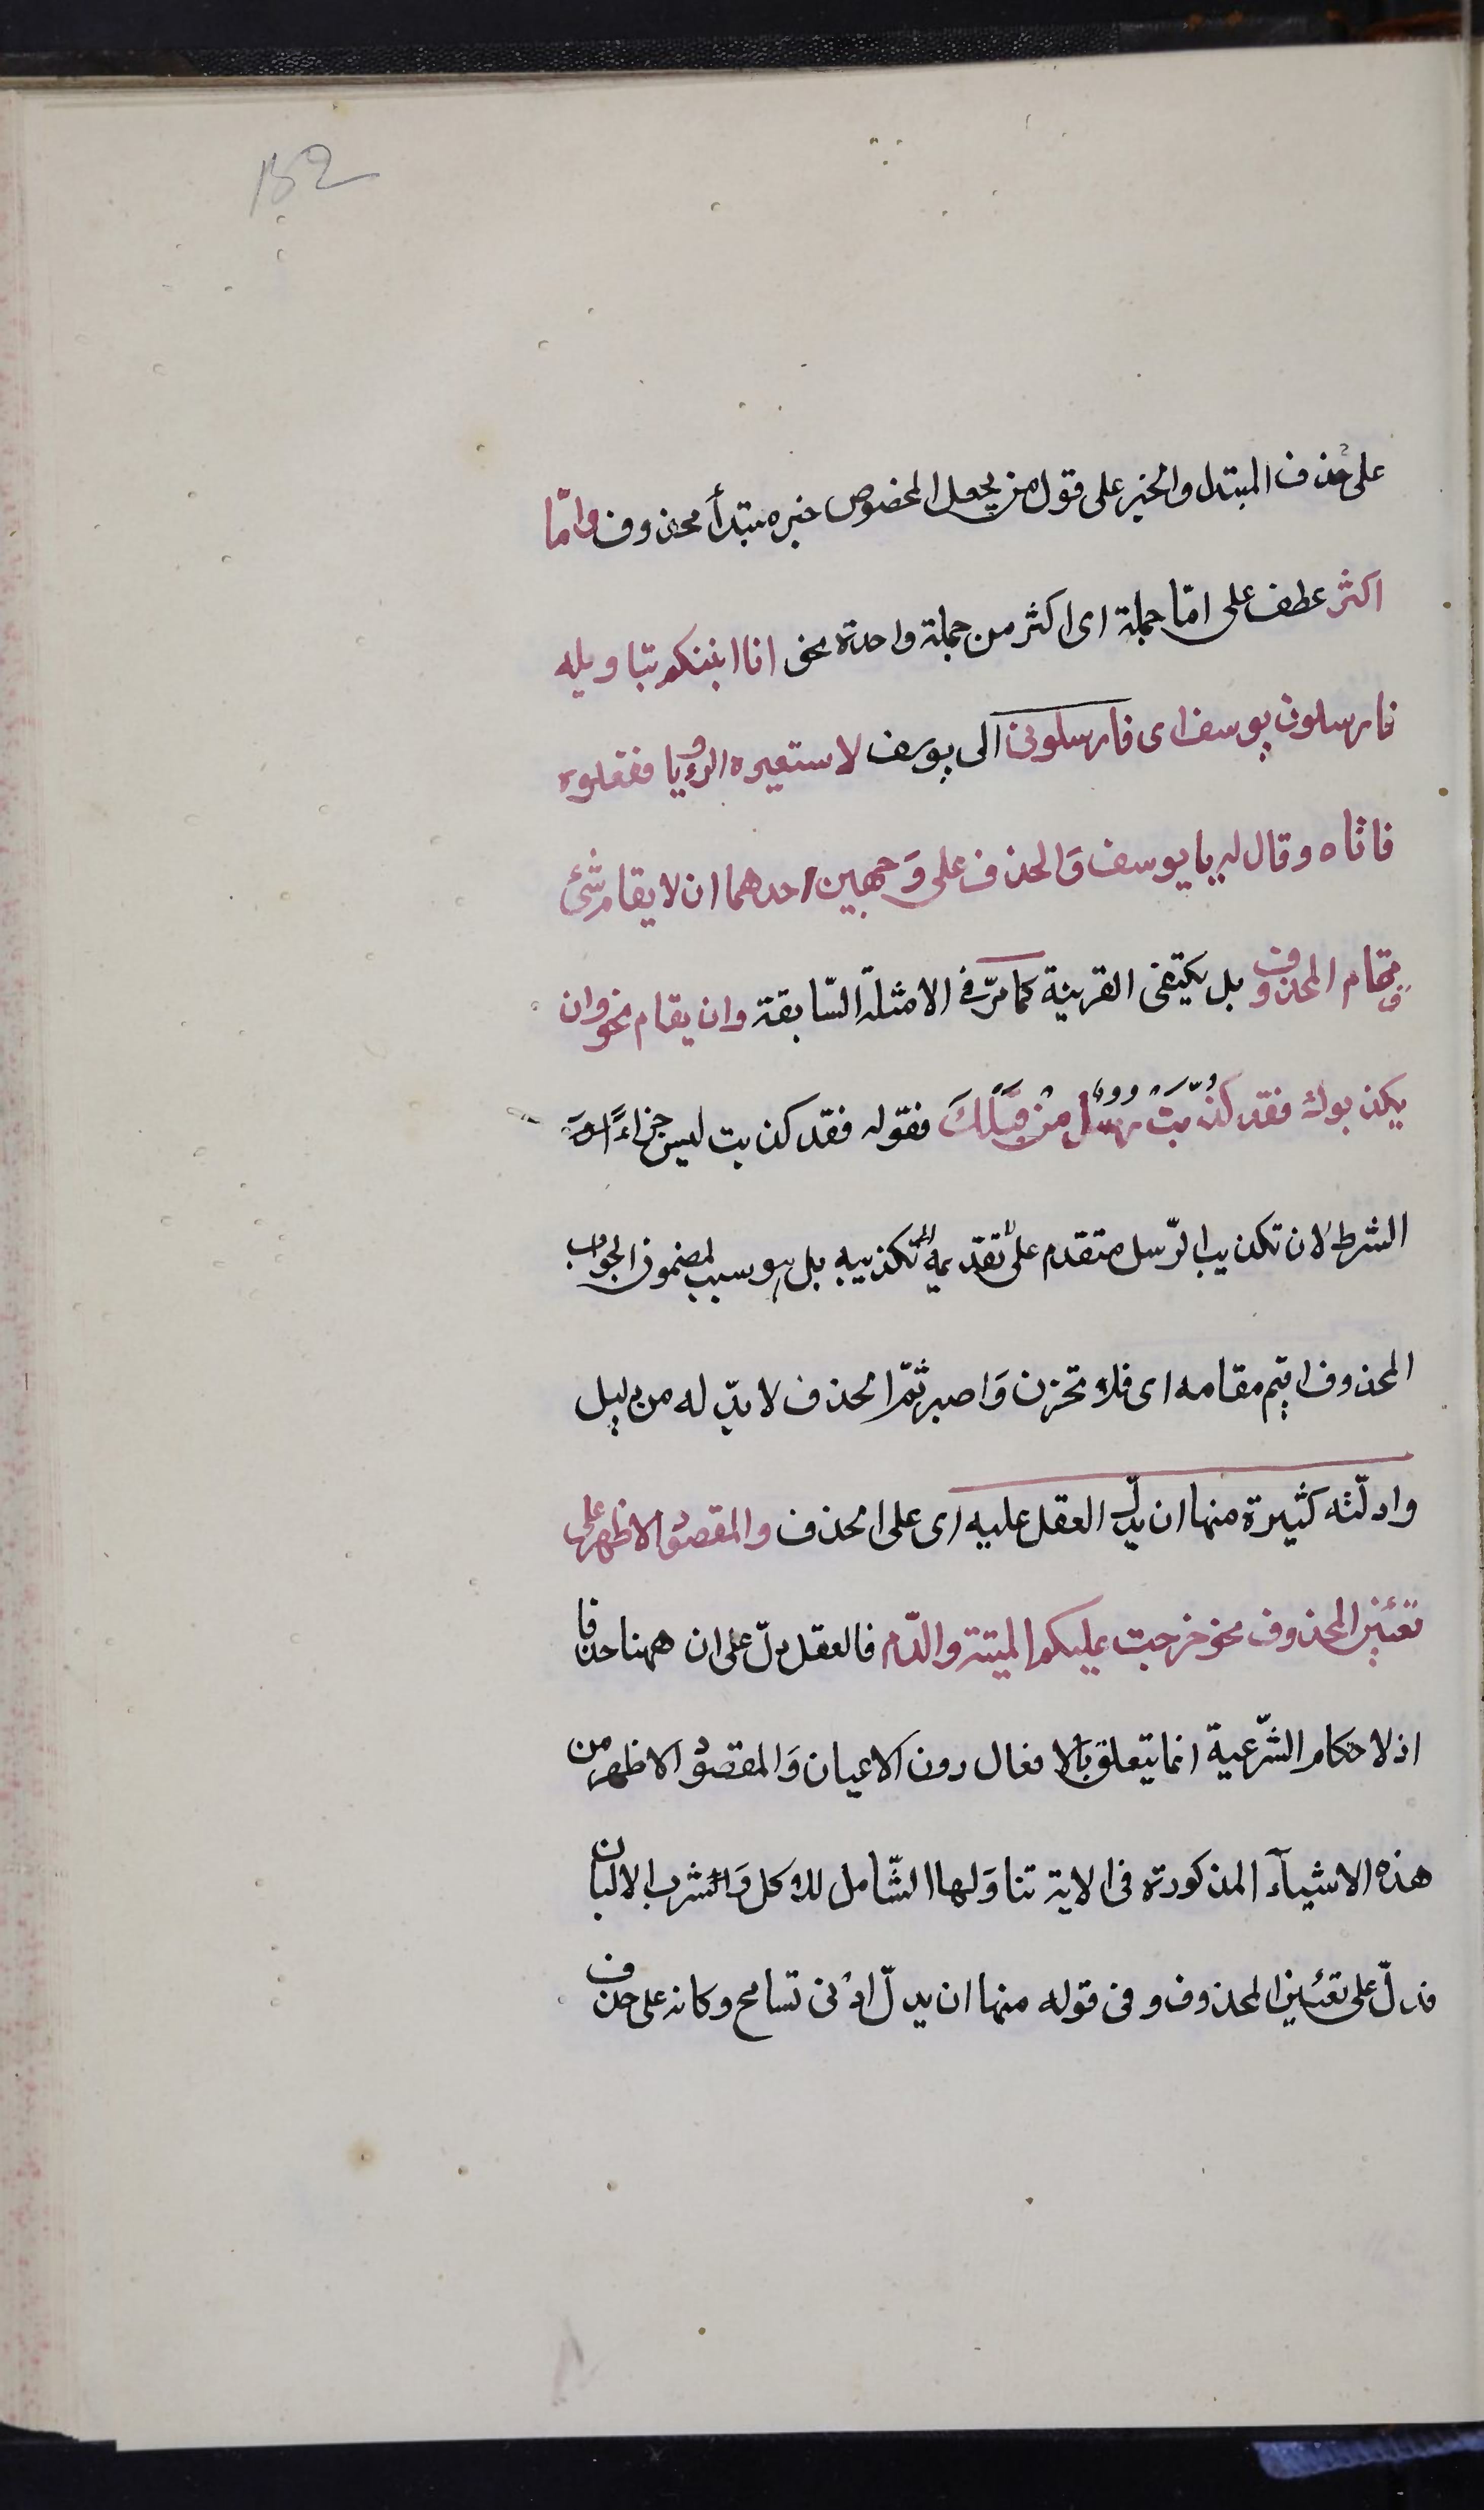 152
على حذف المبتدا والخبر على قول من يجعل المخصوص خبر مبتدأ محذوف وامّا
اكثر عطف على امّا جملة اى اكثر من جملة واحدة نحو انا انبئكم بتاويله
فارسلون يوسف اى فارسلونى الى يوسف لاستعبره الرؤيا ففعلوه
فاتاه وقال له يا يوسف وَالحذف على وَجهين احدهما ان لا يقام شئ
مقام المحذوف بل يكتفى القرينة كما مرّ فى الامثلة السّابقة وان يقام نحو وان
يكذبوك فقد كُذّبَتْ رُسُلٌ مِنْ قَبْلِكَ فقوله فقد كذبت ليس جزاءً
الشرط لان تكذيب الرّسل متقدم على تكذيبه بل هو سبب لمضمون الجواب
المحذوف اقيم مقامه اى فلا تحزن وَاصبر ثمّ الحذف لا بدّ له من دليل
وادلّته كثيرة منها ان يدلّ العقل عليه اى على الحذف والمقصود الاظهر على
تعيين المحذوف نحو حرّمت عليكم الميتة والدّم فالعقل دلّ على ان ههنا حذفا
اذ لاحكام الشّرعية انما يتعلق بالافعال دون الاعيان وَالمقصود الاظهر من
هذه الاشيآء المذكورة فى الاية تناوَلها الشّامل للاكل وَالشرب الالبان
فدلّ على تعيين المحذوف وفى قوله منها ان يدلّ ادْنى تسامح وكانه على حذف